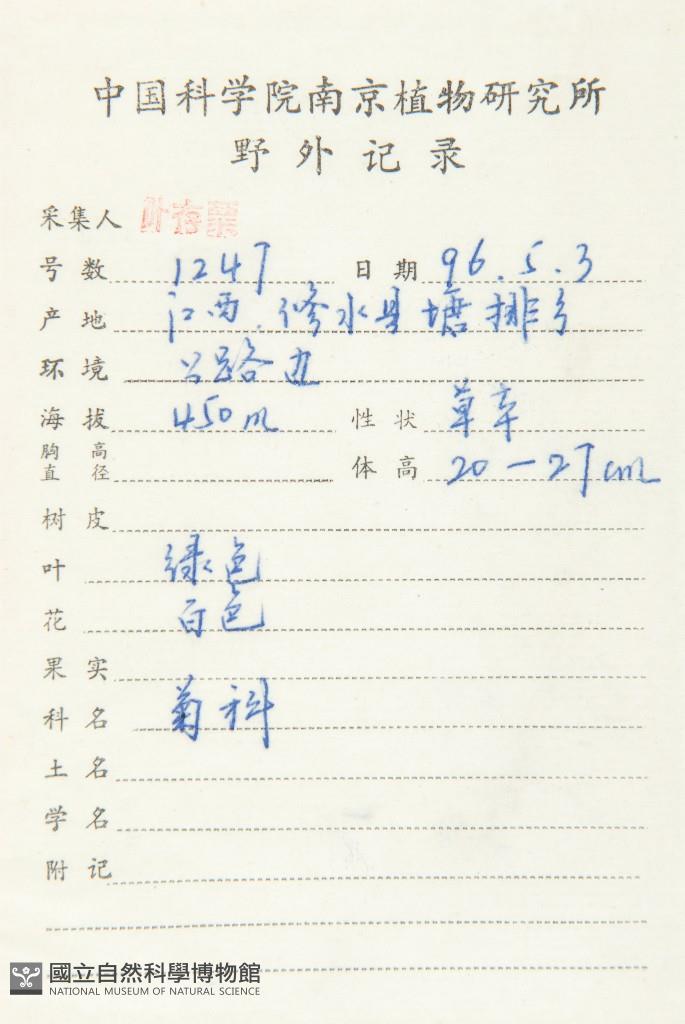 中国科学院南京植物研究所
野外记录
采集人 叶存粟
号数 1247 日期 96.5.3
产地 江西.修水县塘排乡
环境 公路边
海拔 450m 性状 草本
胸高直径 体高 20-27cm
树皮
叶 绿色
花 白色
果实
科名 菊科
土名
学名
附记
國立自然科學博物館
NATIONAL MUSEUM OF NATURAL SCIENCE